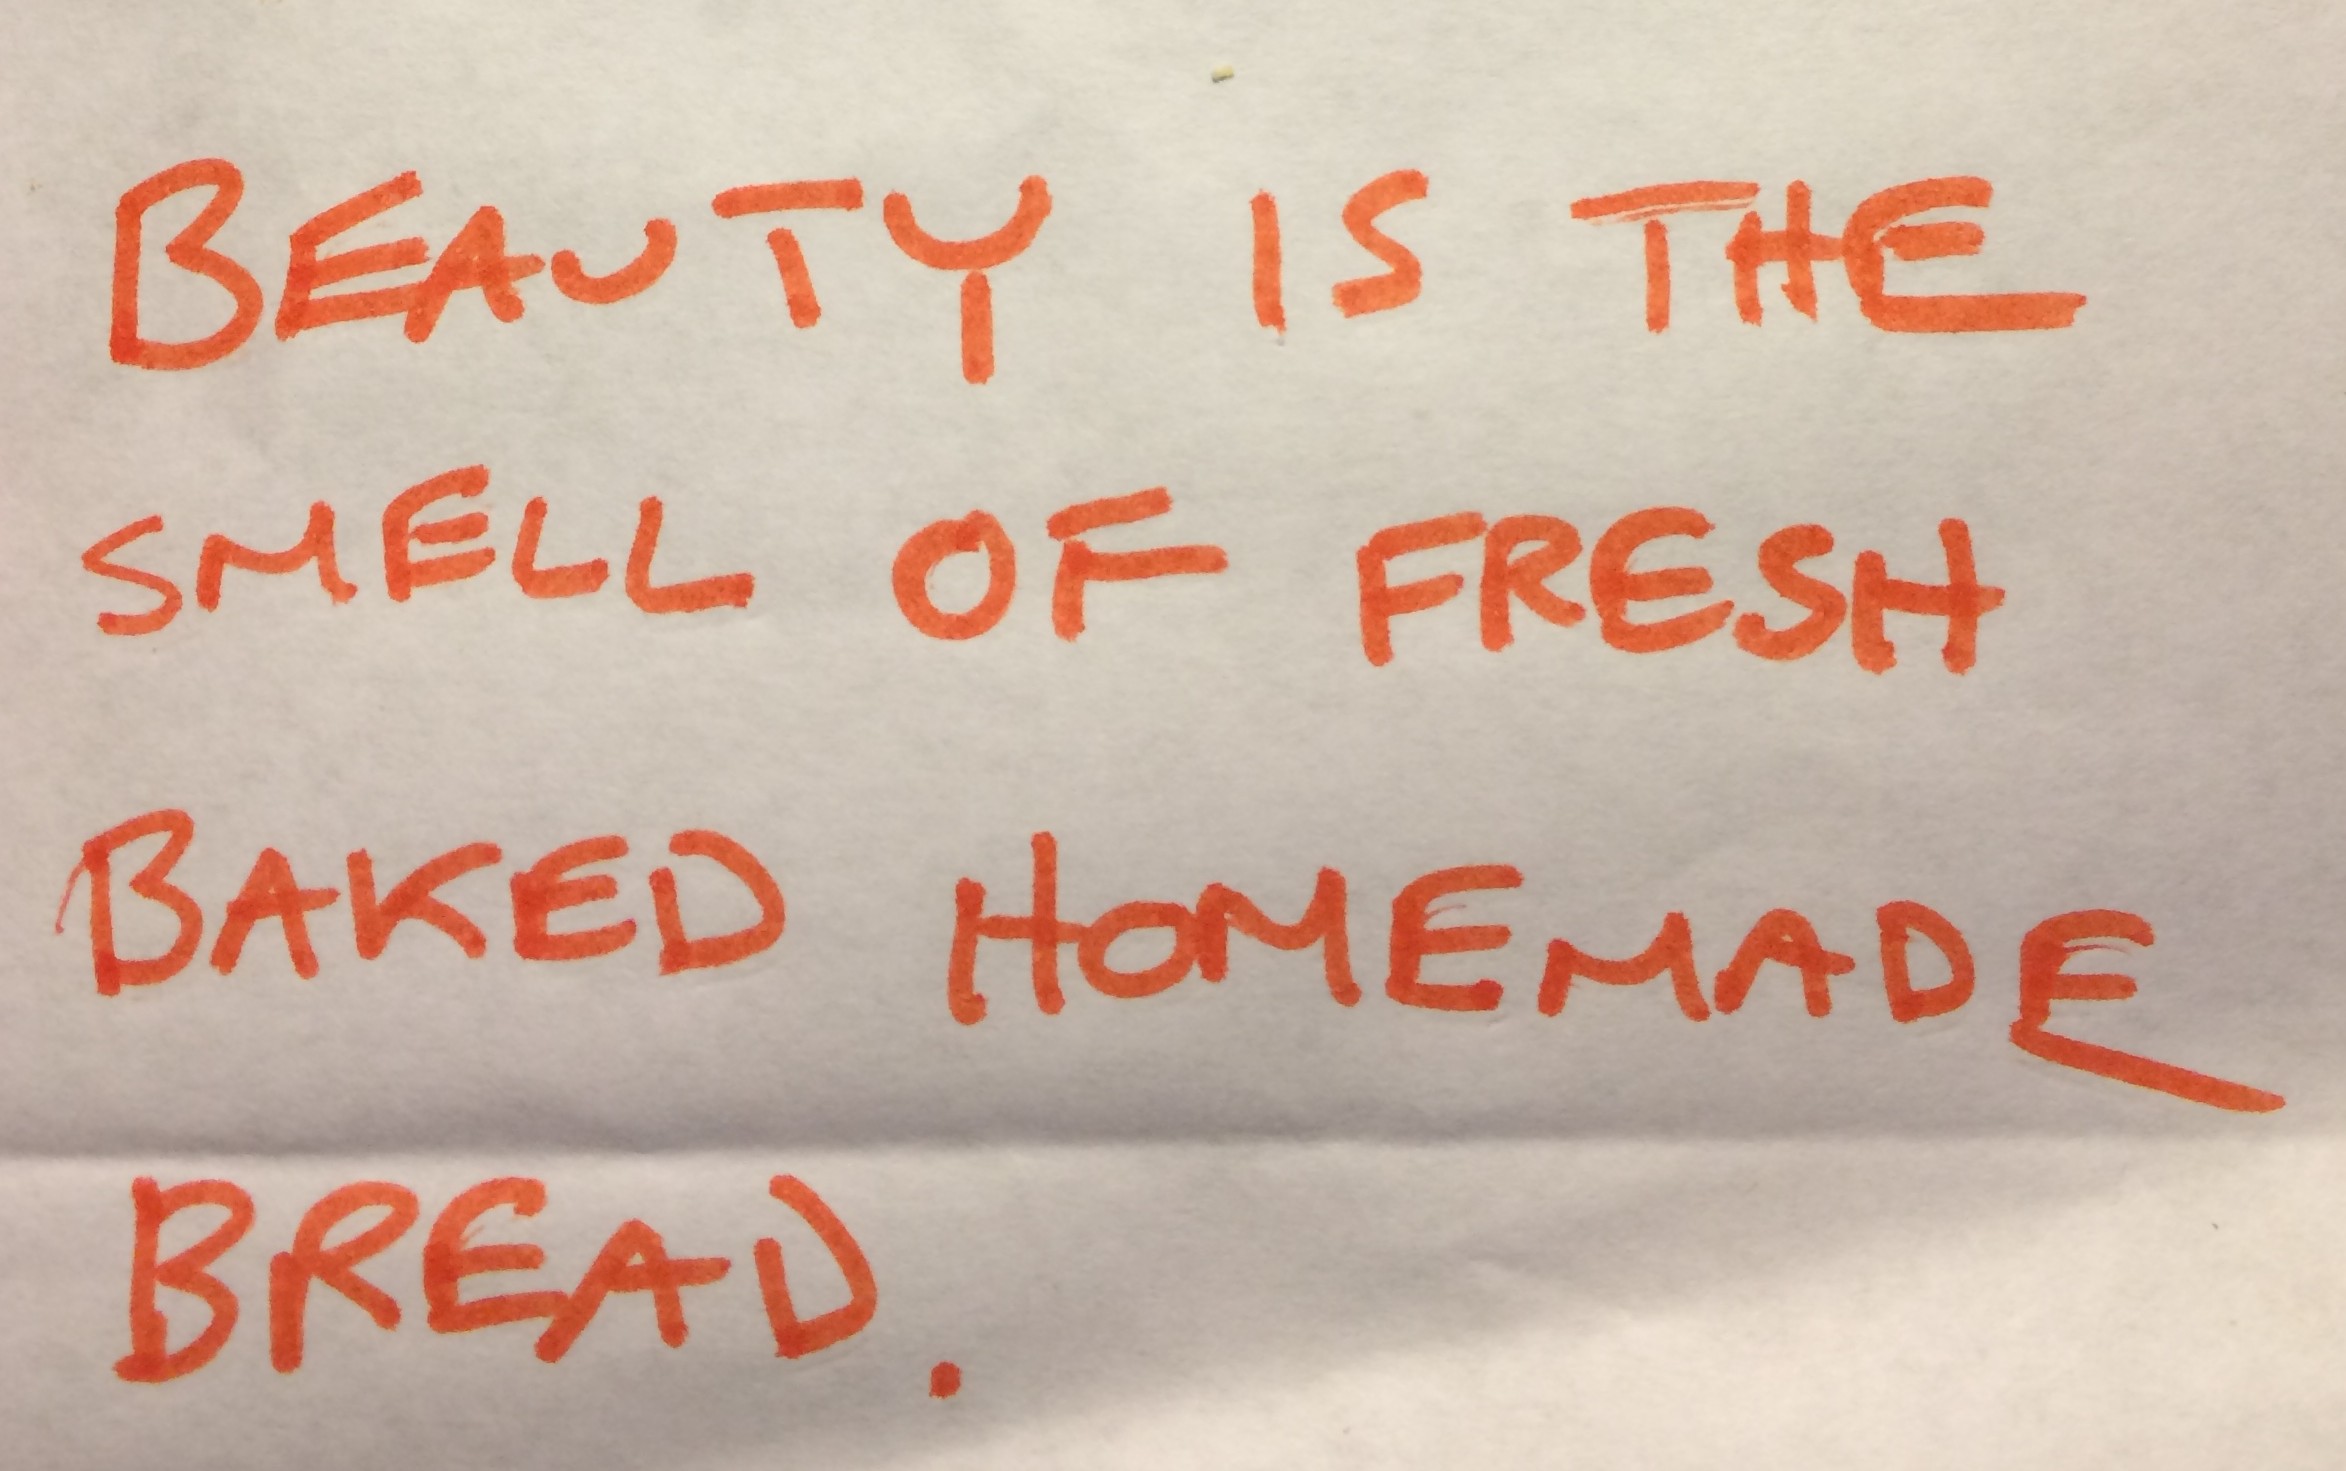 BEAUTY IS THE
SMELL OF FRESH
BAKED HOMEMADE
BREAD.